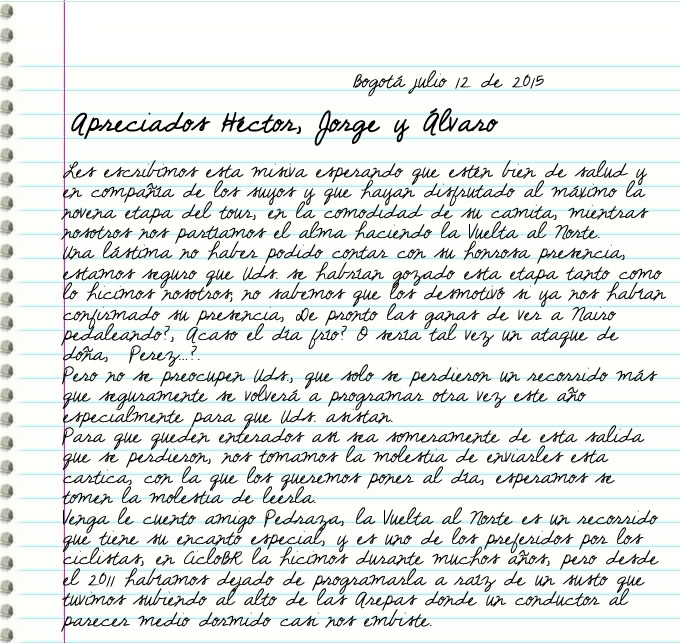 Bogotá julio 12 de 2015
Apreciados Héctor, Jorge y Álvaro
Les escribimos esta misiva esperando que estén bien de salud y
en compañía de los suyos y que hayan disfrutado al máximo la
novena etapa del tour, en la comodidad de su camita, mientras
nosotros nos partíamos el alma haciendo la Vuelta al Norte.
Una lástima no haber podido contar con su honrosa presencia,
estamos seguro que Uds. se habrían gozado esta etapa tanto como
lo hicimos nosotros, no sabemos que los desmotivó si ya nos habían
confirmado su presencia, De pronto las ganas de ver a Nairo
pedaleando?, Acaso el día frío? O sería tal vez un ataque de
doña, Perez...?.
Pero no se preocupen Uds., que solo se perdieron un recorrido más
que seguramente se volverá a programar otra vez este año
especialmente para que Uds. asistan.
Para que queden enterados así sea someramente de esta salida
que se perdieron, nos tomamos la molestia de enviarles esta
cartica, con la que los queremos poner al día, esperamos se
tomen la molestia de leerla.
Venga le cuento amigo Pedraza, la Vuelta al Norte es un recorrido
que tiene su encanto especial, y es uno de los preferidos por los
ciclistas, en CicloBR la hicimos durante muchos años, pero desde
el 2011 habíamos dejado de programarla a raíz de un susto que
tuvimos subiendo al alto de las Arepas donde un conductor al
parecer medio dormido casi nos embiste.